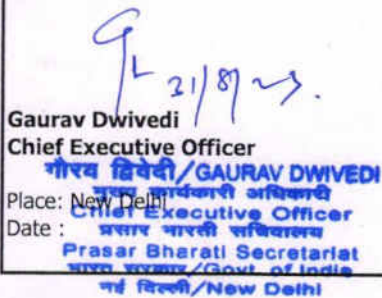 31/8/23.
Gaurav Dwivedi
Chief Executive Officer
गौरव द्विवेदी/GAURAV DWIVEDI
मुख्य कार्यकारी अधिकारी
Place: New Delhi
Chief Executive Officer
Date :
प्रसार भारती सचिवालय
Prasar Bharati Secretariat
भारत सरकार/Govt. of India
नई दिल्ली/New Delhi